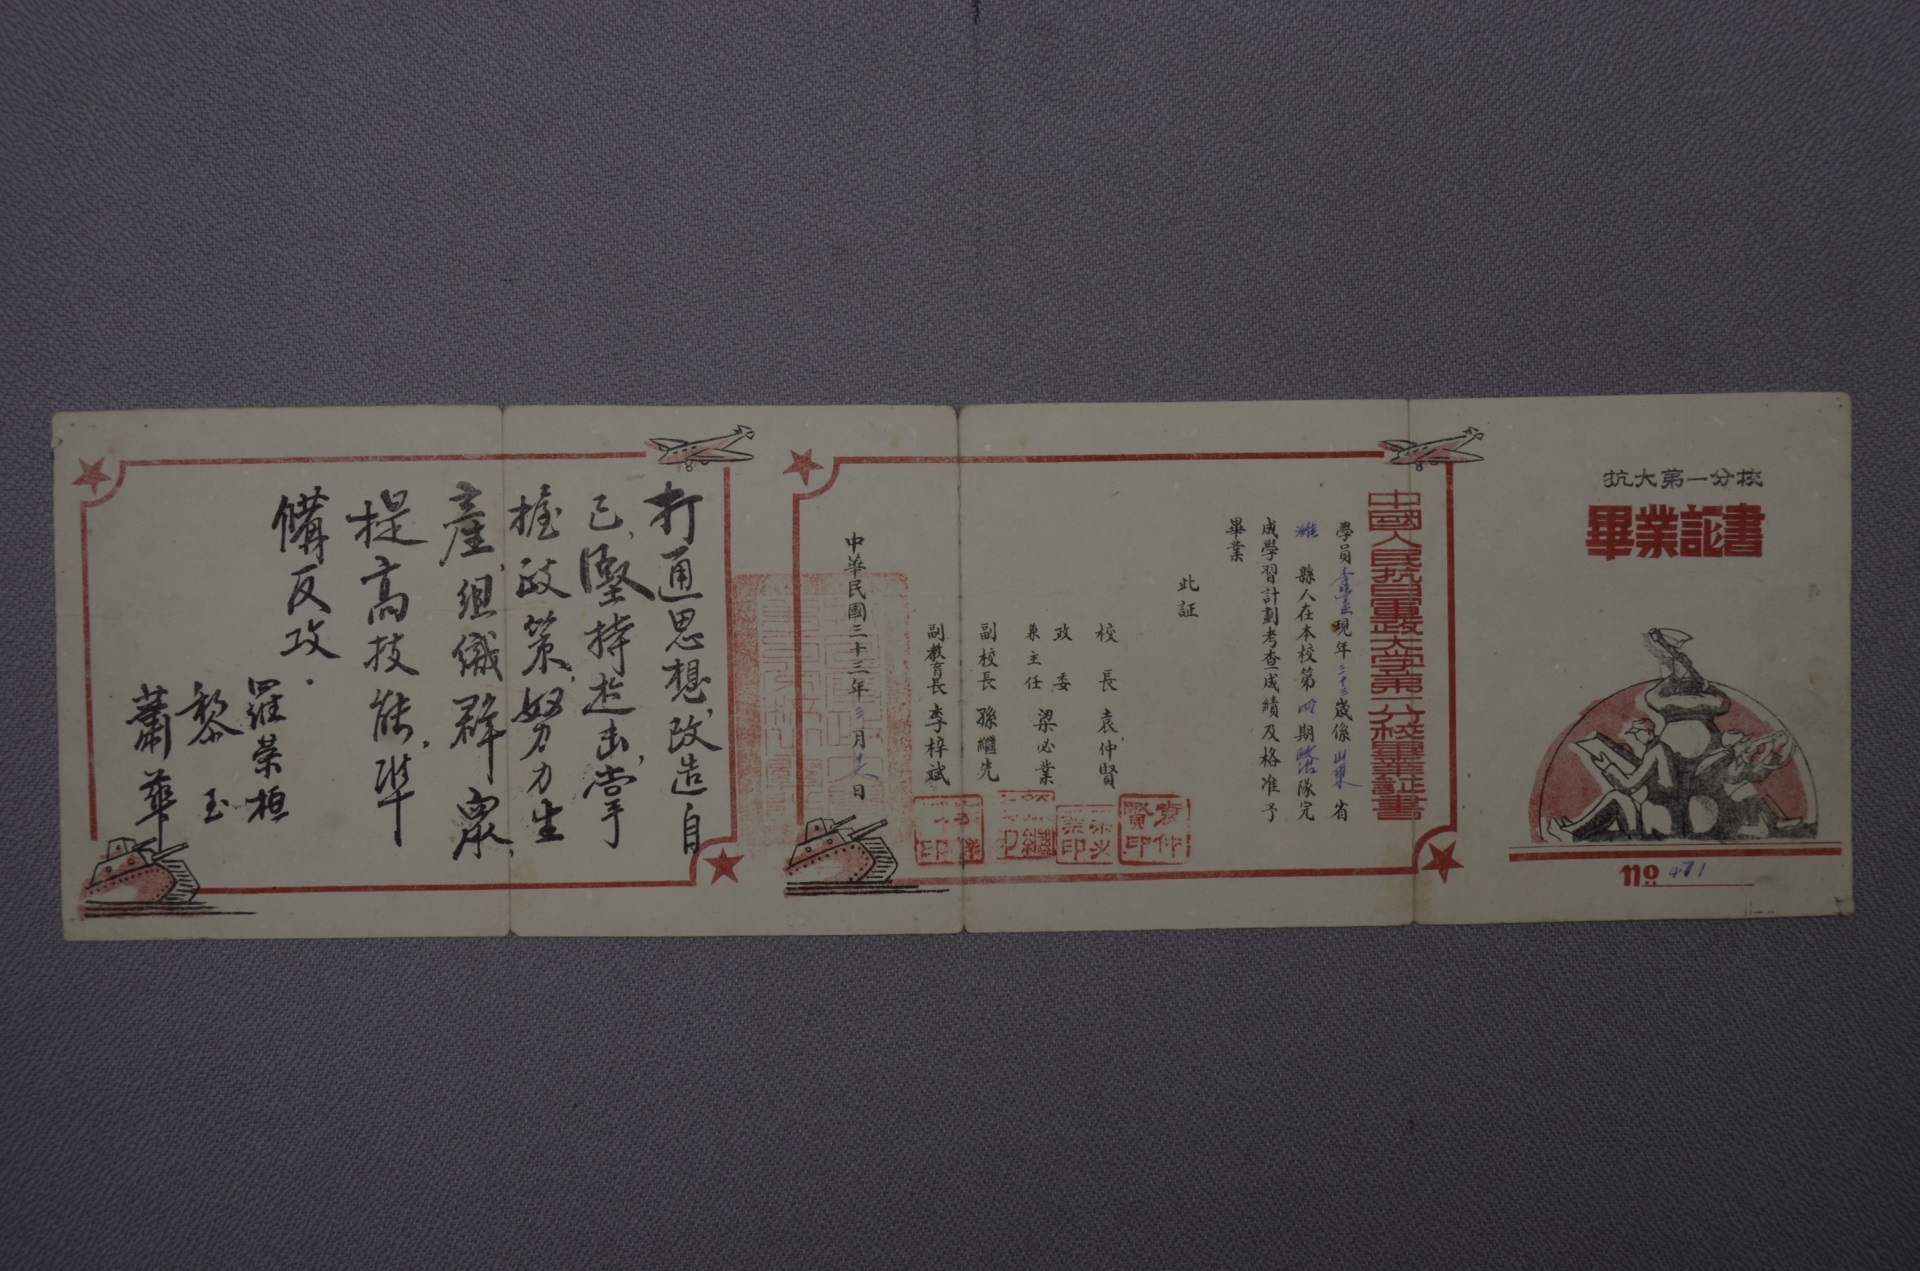 抗大第一分校
畢業証書
no 471
中國人民抗日軍政大学第一分校畢業証書
學員李 現年三十三歲係山東省
濰縣人在本校第四期政治隊完
成學習計劃考查成績及格准予
畢業
此証
校長 袁仲賢
政委
兼主任 梁必業
副校長 孫繼先
副教育長 李梓斌
袁仲賢印
中華民國三十三年三月 日
打通思想,改造自
己,堅持進击,掌
握政策,努力生
產,組織群眾,
提高技能,準
備反攻.
羅榮桓
黎玉
蕭華